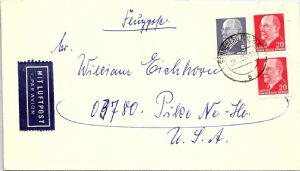 Flugpost
Mr.
William Eichhorn
03780 - Pike Ne-He.
U.S.A.
MIT LUFTPOST
PAR AVION
20
20